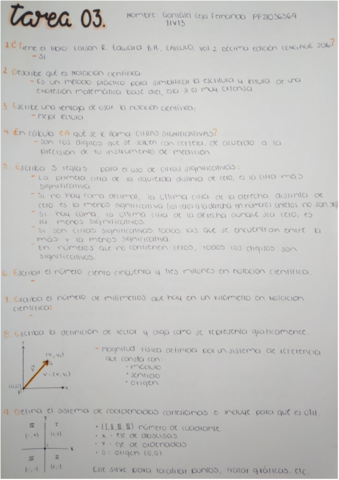 tarea 03.
Nombre:
1. ¿Tiene el libro Larson R. Edwards B.H. CALCULO, vol 2 décimo edición CENGAGE 2016?
- Si
2. Describe qué es notación científica
- Es un método práctico para simplificar la escritura y lectura de una
expresión matemática base diez, esta
3. Escribe una ventaja de usar la notación científica.
- Mejor lectura
4. En cálculo ¿A qué se le llama CIFRAS SIGNIFICATIVAS?
- Son los dígitos que se saben con certeza, de acuerdo a la
precisión de tu instrumento de medición.
5. Escriba 5 reglas para el uso de cifras significativas:
La primera cifra de la izquierda distinta de cero, es la cifra más
significativa.
Si no hay coma decimal, la última cifra de la derecha distinta de
cero es la menos significativa
Si hay coma, la última cifra de la derecha aunque sea cero, es
la menos significativa.
Si son cifras significativas todas las que se encuentran entre la
más y la menos significativa.
En números que no contienen ceros, todos los dígitos son
significativos.
6. Escriba el número ciento cincuenta y tres millones en notación científica.
-
7. Escriba el número de milímetros que hay en un kilómetro en notación
científica:
-
8. Escriba la definición de vector y diga como se representa gráficamente.
- Magnitud física definida por un sistema de referencia
que cuenta con:
• módulo
• sentido
• origen
9. Defina el sistema de coordenadas cartesianas e incluye para qué es útil.
II I
(-,+) (+,+)
III IV
(-,-) (+,-)
• I, II, III, IV número de cuadrante
• X - eje de abscisas
• Y - eje de ordenadas
• O - origen (0,0)
Este sirve para localizar puntos, trazar gráficas, etc.